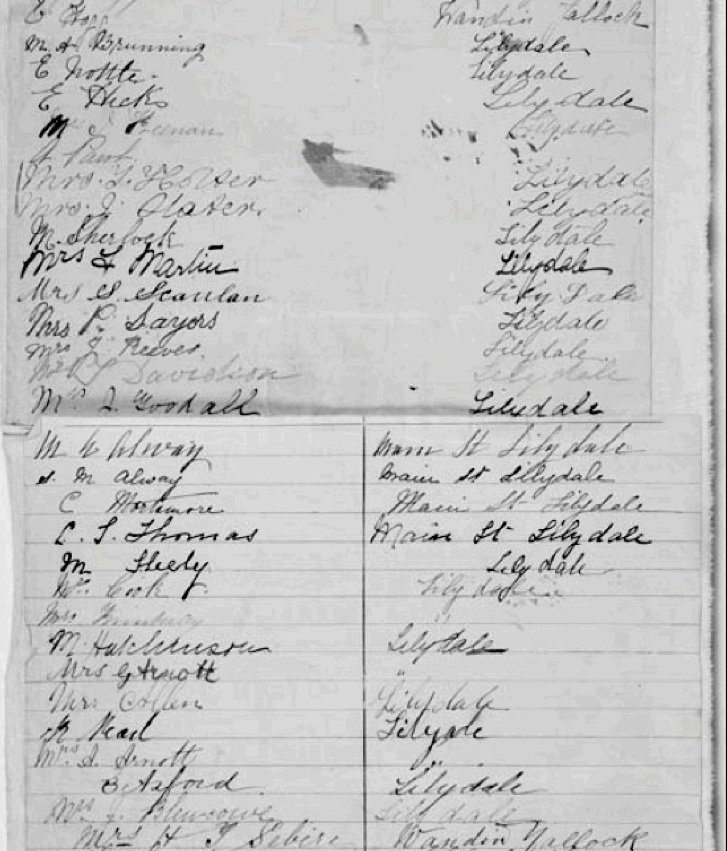 E Wandin Yallock
M A Brunning Lilydale
E Nolte. Lilydale
E Hicks Lilydale
Mrs J Keenan Lilydale
Mrs. T. Holser Lilydale
Mrs. J. Slater. Lilydale
M. Sherlock Lilydale
Mrs F Martin Lilydale
Mrs S. Scanlan Lily Dale
Mrs R. Sayers Lilydale
Mrs J Reeves. Lilydale
Davidson Lilydale
Mrs I. Goodall Lilydale
M A Alway Main St Lilydale
S. M Alway Main St Lillydale
C Mortimore Main St Lilydale
C. S. Thomas Main St Lilydale
M Lilydale
Mrs Cook Lilydale
Mrs
M. Hutchinson Lilydale
Mrs G Arnott "
Mrs Allen Lilydale
Nead Lilyale
Mrs. A. Arnott "
B Axford Lilydale
Mrs J. Lilydale
Mrs H T Sebire Wandin Yallock